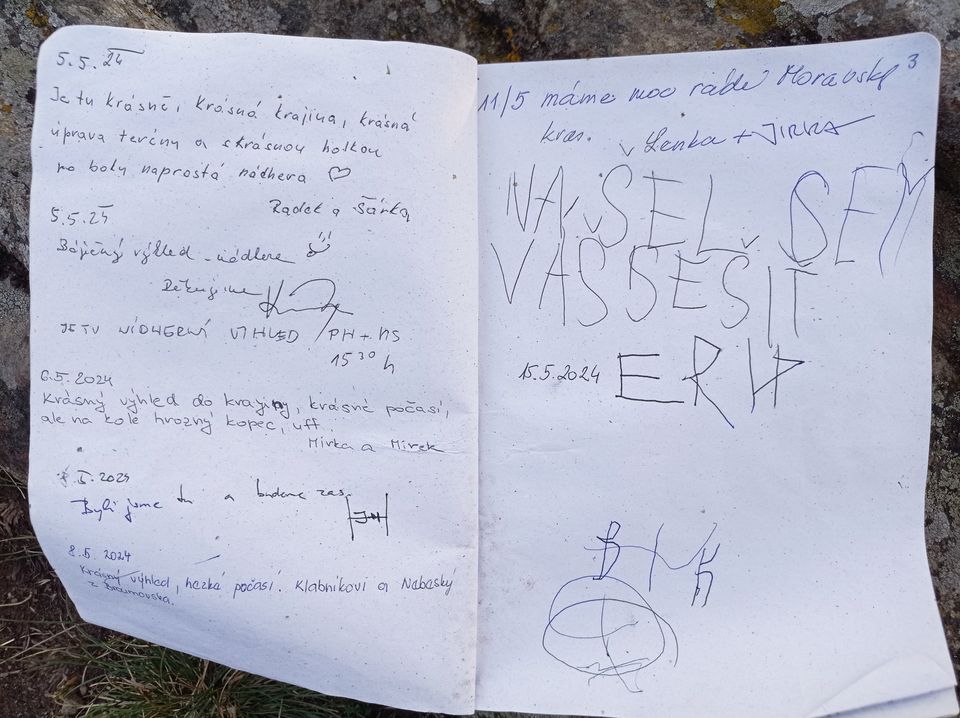 5.5.24
Je tu krásně, krásná krajina, krásná
úprava terény a skrásnou holkou
po boku naprostá nádhera
Radek a Šárka
5.5.24
Báječný výhled - nádhera
Děkujeme
JE TU NÁDHERNÝ VÝHLED PH + MS
15 30 h
6.5.2024
Krásný výhled do krajiny, krásné počasí,
ale na kole hrozný kopec, uff.
Mirka a Mirek
5.2024
Byli jsme tu a budeme zas.
8.5.2024
Krásný výhled, hezké počasí. Klabníkovi a Nabeský
z Broumovska.
3
11/5 máme moc rádi Moravský
kras. Lenka + JIRKA
NAŠEL SEM
VÁŠ SEŠIT
15.5.2024